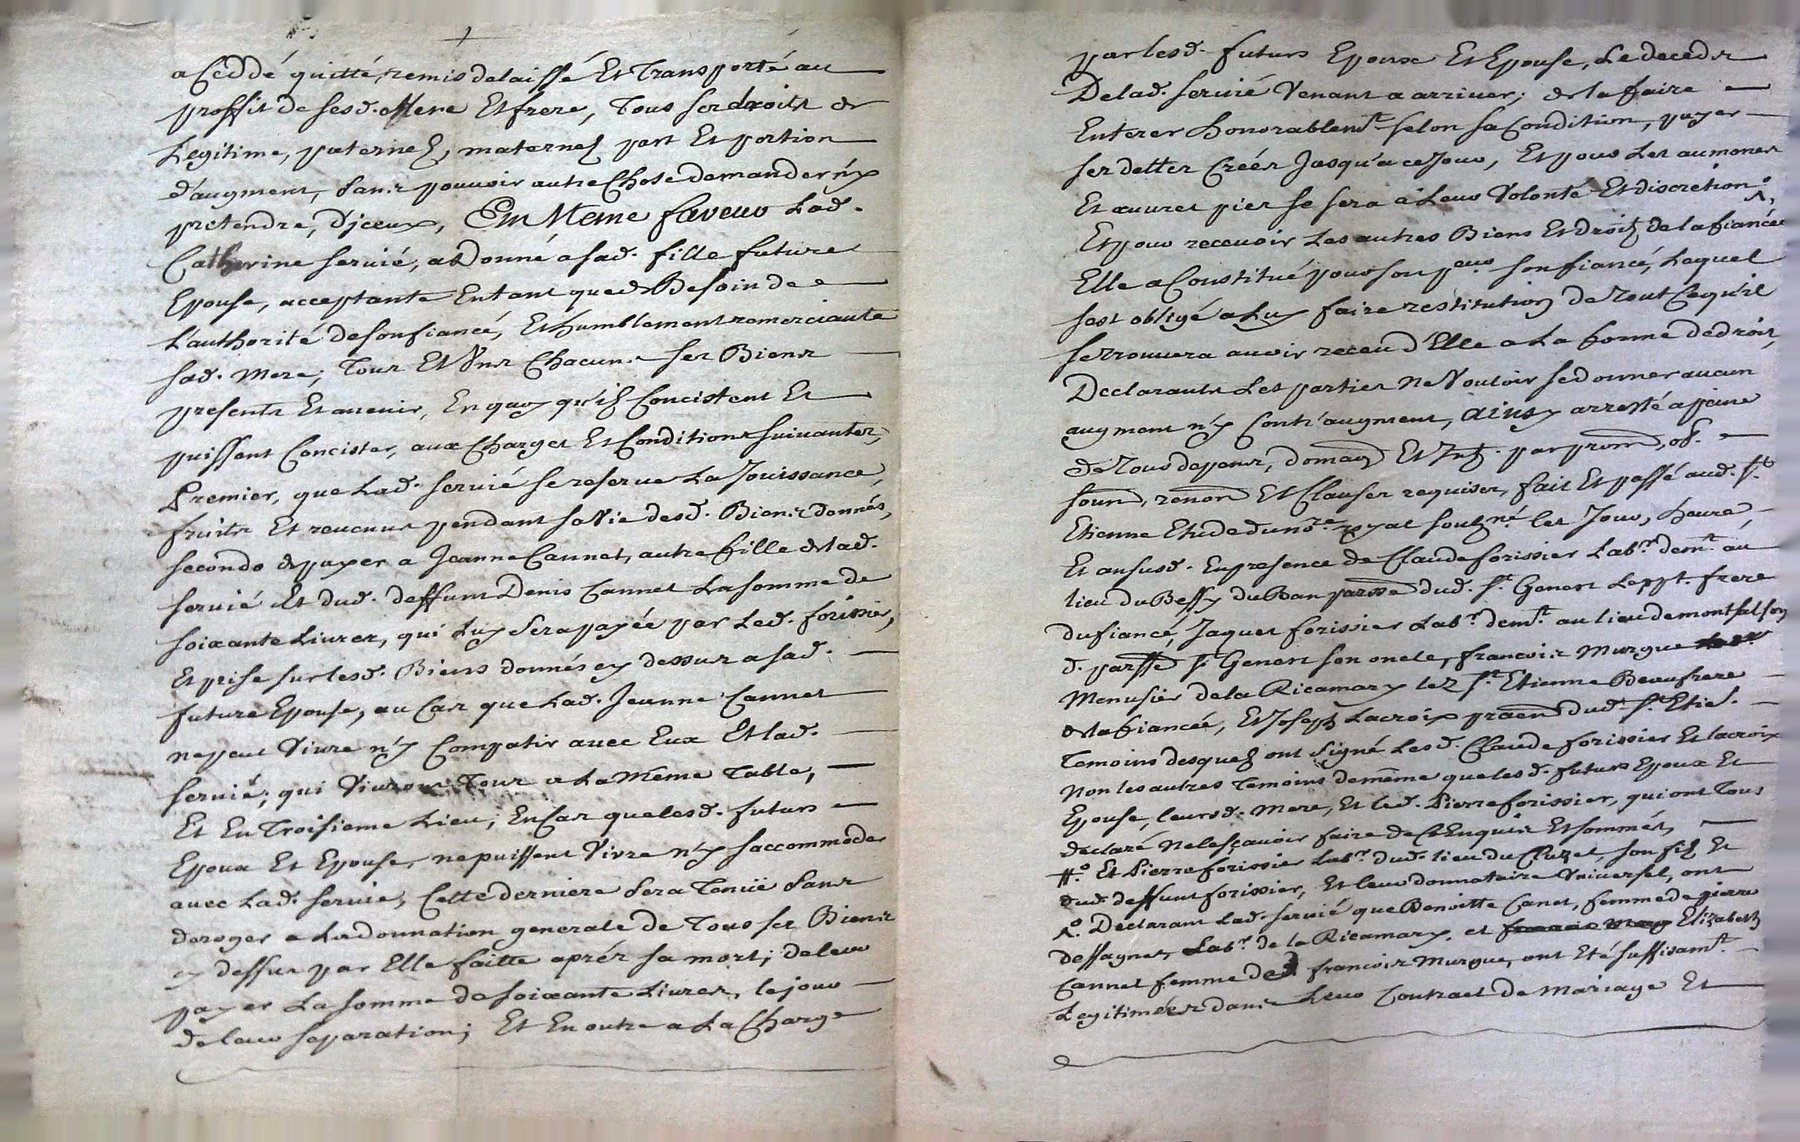 a Ceddé quitté, remis delaissé Et Transporté au
proffit de sesd. Mere Et frere, Tous ses droits de
Legitime, paternelz, maternelz part Et portion
d'augment, Sans pouvoir autre Chose demander n'y
pretendre, D'jceux, En Meme faveur Lad.
Catherine servié, a Donné a sad. fille future
Epouse, acceptante Entant que de Besoin de
L'authorité de son fiancé, Et humblement remerciante
sad. Mere, Tous Et Uns Chacuns ses Biens
presents Et avenir, En quoy qu'ilz Concistent Et
puissent Concister, aux Charges Et Conditions suivantes,
Premier, que Lad. servié se reserve La Jouissance,
fruits Et revenus pendant sa Vie desd. Biens donnés,
secondo de payer a Jeanne Cannet, autre fille de lad.
servié Et dud. deffunt Denis Cannet La somme de
soixante Livres, qui Luy Sera payée par Led. forissier,
Et prise sur lesd. Biens donnés cy dessus a sad.
future Epouse, au Cas que Lad. Jeanne Cannet
ne peut Vivre n'y Compatir avec Eux Et lad.
servié, qui Vivront Tous a La Méme Table,
Et En Troisieme Lieu, En Cas que lesd. futurs
Epoux Et Epouse, ne puissent Vivre n'y s'accommoder
avec Lad. servié, Cette derniere Sera Tenüe Sans
deroger a La donnation generale de Tous ses Biens
cy dessus par Elle faitte aprés sa mort; de leur
payer La somme de soixante Livres, le jour
de leur separation; Et En outre a La Charge
par lesd. futurs Epoux Et Epouse, Le decedz
De lad. servié Venant a arriver; de la faire
Enterer honorablemt. selon sa Condition, payer
ses dettes Créés Jusqu'a ce Jour, Et pour Les aumones
Et œuvres pies se sera á Leur Volonté Et discretion
Et pour recevoir Les autres Biens Et droitz de la fiancée
Elle a Constitué pour son peur. son fiancé, Lequel
s'est obligé a Luy faire restitution de Tout Ce qu'il
se Trouvera avoir receu d'Elle a La forme de droit,
Declarants Les parties Ne Vouloir se donner aucun
augment n'y Contr'augment, ainsy arresté a peine
de Tous depens, domag Et Intz. par prom, ob.
soum, renon Et Clauses requises, fait Et passé aud. St.
Etienne Etude du nore. royal soubzné. les Jour, heure,
Et an susd. En presence de Claude forissier Labr. demt. au
lieu du Bessy du Ban parosse dud. St. Genest Leppt. frere
du fiancé, Jaques forissier Labr. demt. au lieu de montfalson
d. parsse St. Genest son oncle, francois Murgue
Menusier de la Ricamary lez St. Etienne Beaufrere
de la fiancée, Et Joseph Lacroix praen dud. St. Etie.
Temoins desquelz ont Signé Lesd. Claude forissier Et lacroix
Non les autres Temoins de même que lesd. futurs Epoux Et
Epouse, leursd. Mere, Et led. Pierre forissier, qui ont Tous
declaré Ne le sçavoir faire de Ce Enquis Et sommés,
Et Pierre forissier Labr. dud. lieu du Cluzet, son filz Et
dud. deffunt forissier, Et leur donnataire Universel, ont
Declarant Lad. servié que Benoitte Canet, femme de pierre
dessagnes, Labr. de la Ricamary, et Elizabeth
Cannet femme de francois Murgue, ont Eté suffisamt.
Legitimées dans Leur Contract de Mariage Et